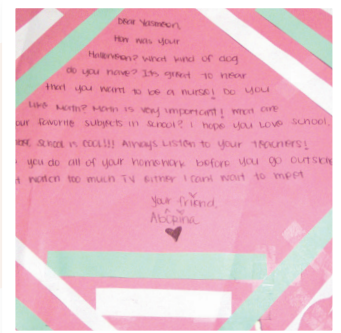 Dear Yasmeen,
How was your
Halloween? What kind of dog
do you have? Its good to hear
that you want to be a nurse! Do you
Like Math? Math is very important! What are
our favorite subjects in school? I hope you love school,
school is cool!!! Always Listen to your teachers!
you do all of your homework before you go outside
watch too much TV either I cant wait to meet
Your friend,